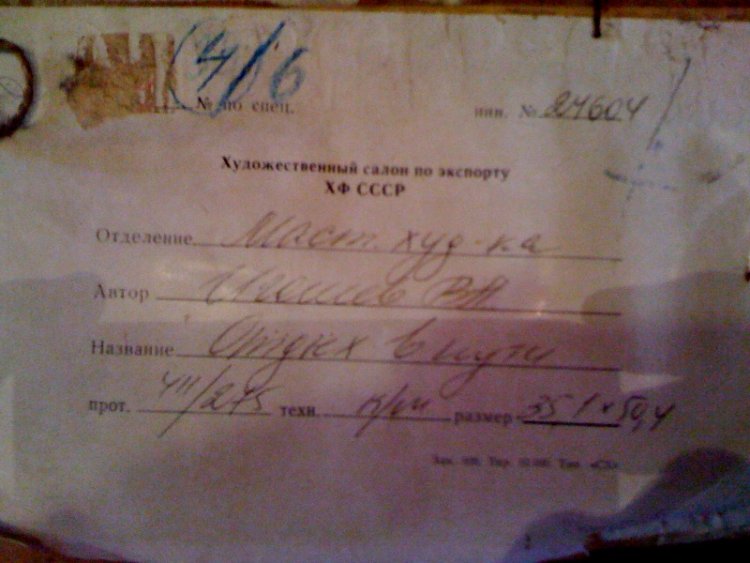 4/6
№ по спец. инв. № 27604
Художественный салон по экспорту
ХФ СССР
Отделение Маст. худ-ка
Автор Игошев В.А.
Название Отдых в пути
прот. 411/275 техн. к/м размер 35,1 x 50,4
Тип. «СХ»